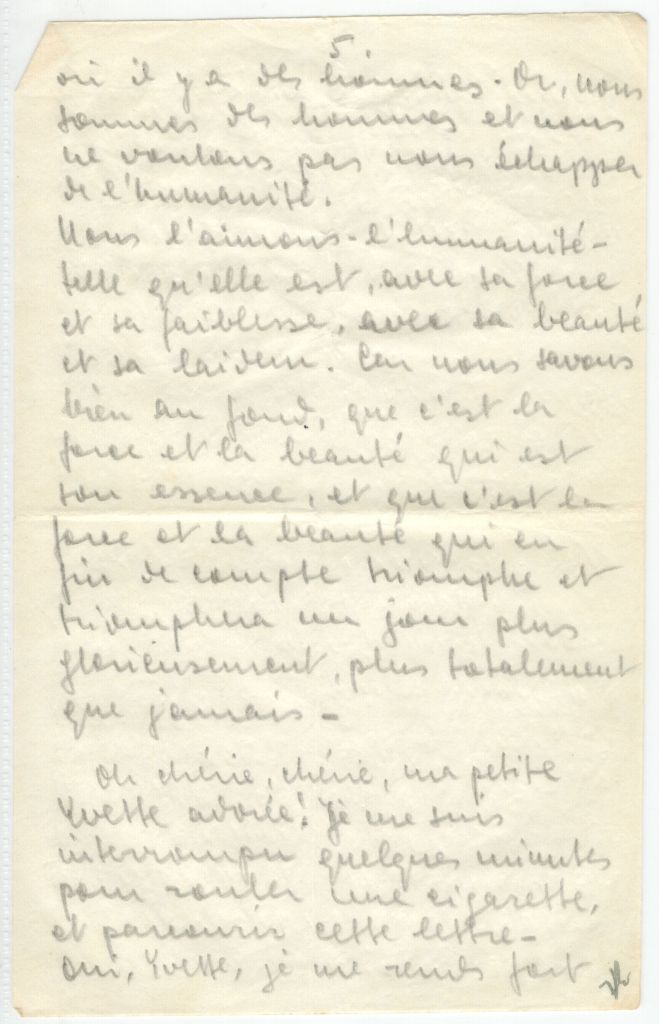 5.
où il y a des hommes - Or, nous
sommes des hommes et nous
ne voulons pas nous échapper
de l'humanité.
Nous l'aimons - l'humanité -
telle qu'elle est, avec sa force
et sa faiblesse, avec sa beauté
et sa laideur. Car nous savons
bien au fond, que c'est la
force et la beauté qui est
son essence, et que c'est la
force et la beauté qui en
fin de compte triomphe et
triomphera un jour plus
glorieusement, plus totalement
que jamais -
Oh chérie, chérie, ma petite
Yvette adorée! Je me suis
interrompu quelques minutes
pour rouler une cigarette,
et parcourir cette lettre -
Oui, Yvette, je me rends fort